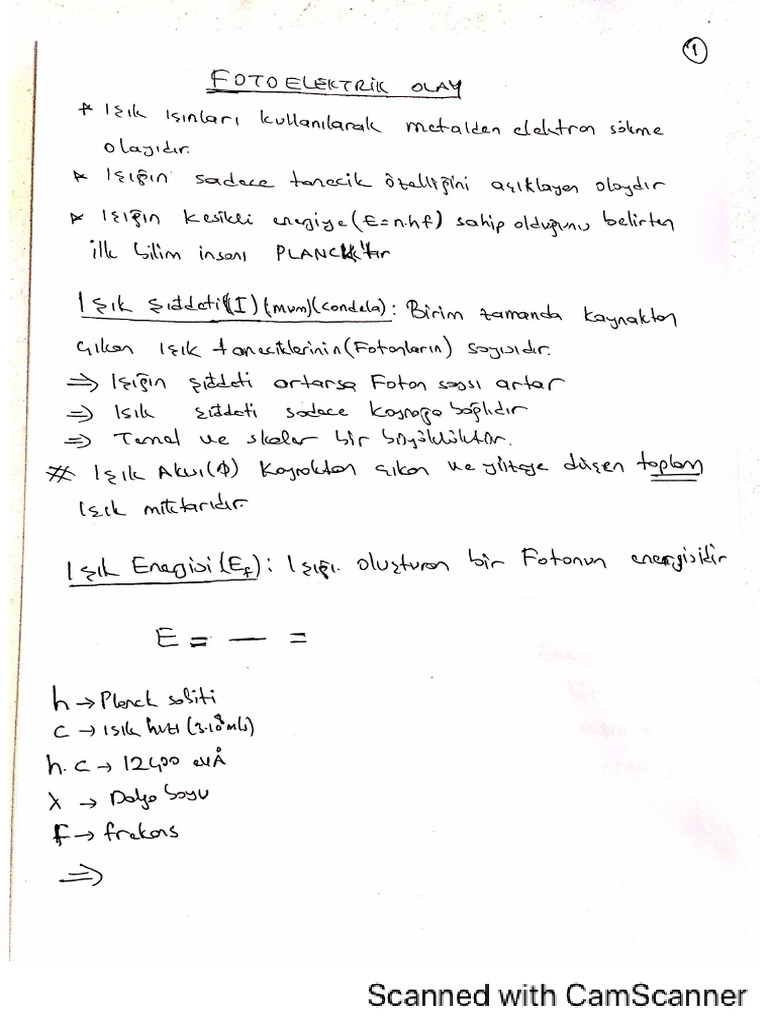 1
FOTOELEKTRİK OLAY
* Işık Işınları kullanılarak metalden elektron sökme
olayıdır.
* Işığın sadece tanecik özelliğini açıklayan olaydır
* Işığın Kesikli enerjiye (E=n.hf) sahip olduğunu belirten
ilk bilim insanı PLANCK'tır
Işık Şiddeti (I) (mum) (candela) : Birim zamanda kaynaktan
çıkan ışık taneciklerinin (Fotonların) sayısıdır.
⇒ Işığın şiddeti artarsa Foton sayısı artar
⇒ Işık şiddeti sadece kaynağa bağlıdır
⇒ Temel ve skaler bir büyüklüktür.
# Işık Akısı (Φ) Kaynaktan çıkan ve yüzeye düşen toplam
Işık miktarıdır.
Işık Enerjisi (Ef) : Işığı oluşturan bir Fotonun enerjisidir
E = — =
h → Planck sabiti
c → ışık hızı (3.10⁸ m/s)
h.c → 12400 eVÅ
λ → Dalga boyu
f → frekans
⇒
Scanned with CamScanner